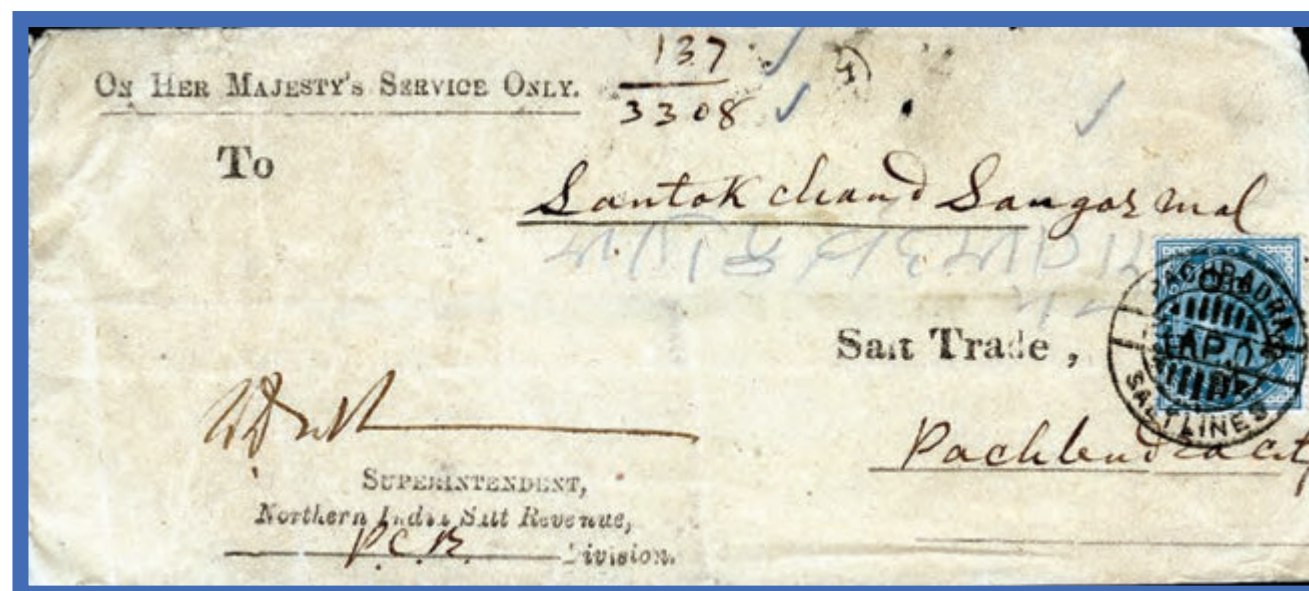 137
ON HER MAJESTY'S SERVICE ONLY.
3308
To
Santok chand Sangor mal
Salt Trade,
PACHBADRA
AP.
SALT LINES
Pachbudra city
SUPERINTENDENT,
Northern India Salt Revenue,
P.C.R. Division.